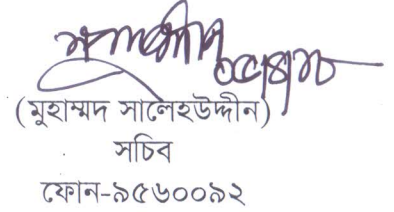 (মুহাম্মদ সালেহউদ্দীন)
সচিব
ফোন-৯৫৬০০৯২